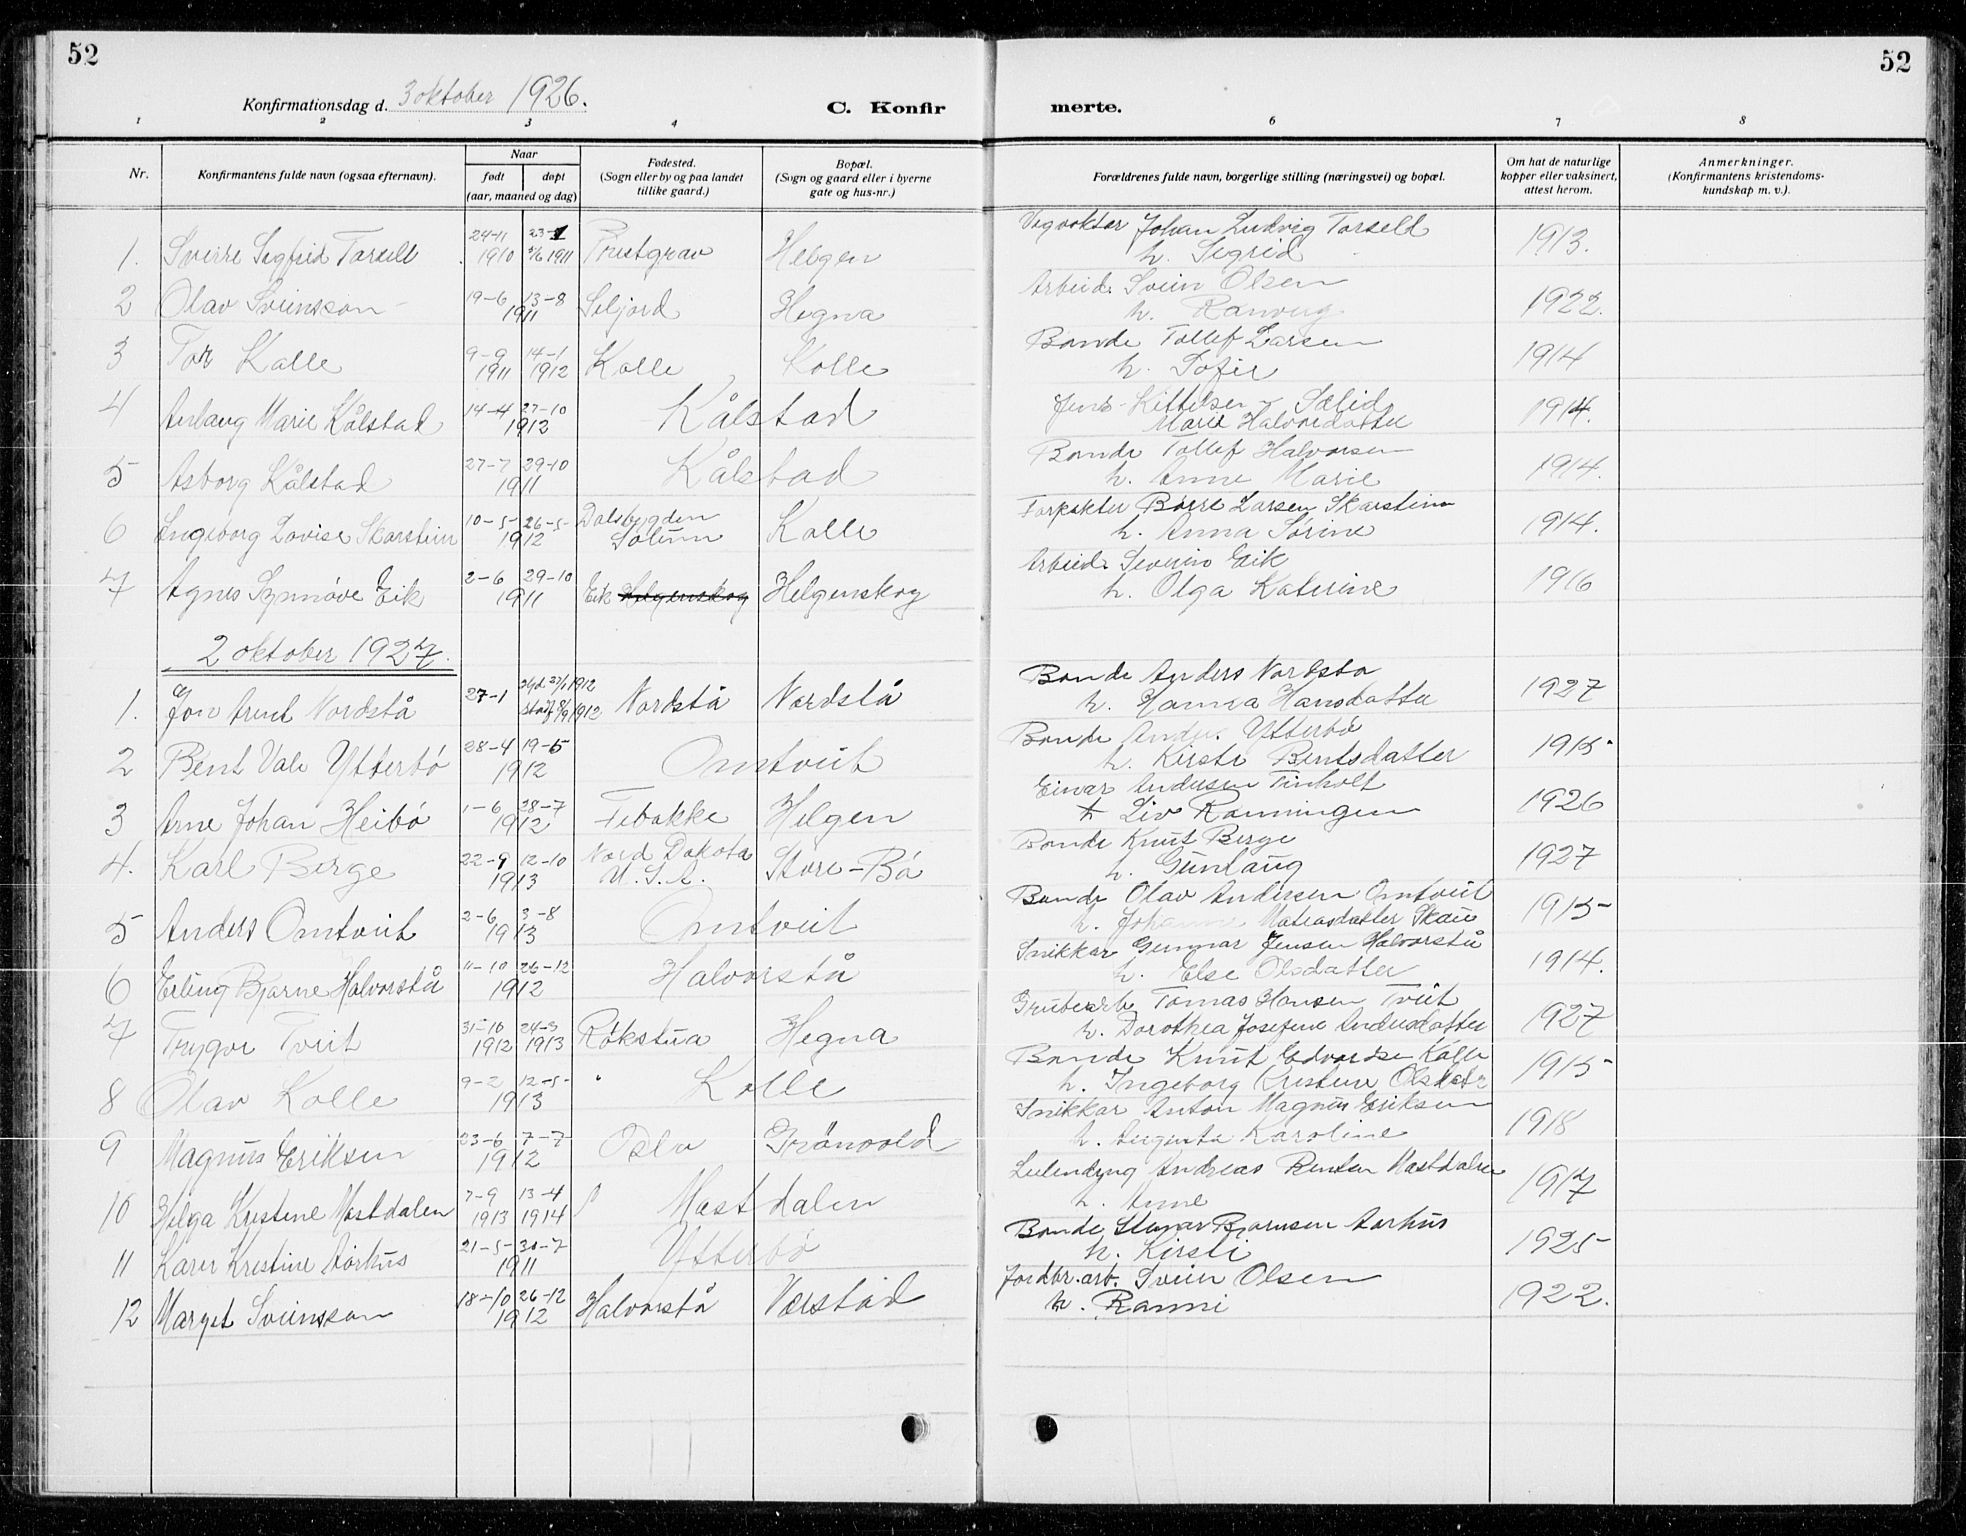 52
52
Konfirmationsdag d. 3 oktober 1926.
C. Konfir
merte.
1 2 3 4 6 7 8
Nr.
Konfirmantens fulde navn (ogsaa efternavn).
Naar
født døpt
(aar, maaned og dag)
Fødested.
(Sogn eller by og paa landet
tillike gaard.)
Bopæl.
(Sogn og gaard eller i byerne
gate og hus-nr.)
Forældrenes fulde navn, borgerlige stilling (næringsvei) og bopæl.
Om hat de naturlige
kopper eller vaksinert,
attest herom.
Anmerkninger.
(Konfirmantens kristendoms-
kundskap m. v.).
1. Sverre Sigfrid Torsell 24-11 1910 1911 Helgen
Johan Ludvig Torseld 1913.
h. Sigrid
2 Olav Sveinsson 19-6 13-8 1911 Seljord Hegna
Arbeid. Svein Olsen 1922.
h. Ranveig
3 Tor Kolle 9-9 1911 14-1 1912 Kolle Kolle
Bonde Tollef Larsen 1914
h. Sofie
4 Anlaug Marie Kålstad 14-4 27-10 1912 Kålstad
Jens Kittelsen Sølid 1914.
Marie Halvorsdatter
5 Asborg Kålstad 27-7 29-10 1911 Kålstad
Bonde Tollef Halvorsen 1914.
h. Anne Marie
6 Ingeborg Lovise Skarstein 10-5- 26-5- 1912 Dalsbygden Solum Kolle
Forpakter Børre Larsen Skarstein 1914.
h. Anna Sørine
7 Agnes Synnøve Eik 2-6 29-10 1911 Eik Helgenskog Helgenskog
Arbeid. Severin Eik 1916
h. Olga Katerine
2 oktober 1927.
1. Jon Arent Nordstå 27-1 27/1 1912 1912 Nordstå Nordstå
Bonde Anders Nordstå 1927
h. Hanna Hansdatter
2 Bent Vale Ytterbö 28-4 19-5 1912 Omtveit
Bonde Anders Ytterbø 1915-
h. Kirsti Bentsdatter
3 Arne Johan Heibö 1-6 28-7 1912 Febakke Helgen
Einar Andersen Tinholt 1926
Liv Rønningen
4. Karl Berge 22-9 12-10 1913 Nord Dakota U.S.A. Store-Bö
Bonde Knut Berge 1927
h. Gunlaug
5 Anders Omtveit 2-6 3-8 1913 Omtveit
Bonde Olav Andersen Omtveit 1915-
h. Johanne Matiasdatter Skau
6 Erling Bjarne Halvorstå 11-10 26-12 1912 Halvorstå
Snikkar Gunnar Jensen Halvorstå 1914.
h. Else Olsdatter
7 Trygve Tveit 31-10 1912 24-3 1913 Rökstua Hegna
Grubearb. Tomas Hansen Tveit 1927
h. Dorothea Josefine Andersdatter
8 Olav Kolle 9-2 12-5- 1913 Kolle
Bonde Knut Edvardsen Kolle 1915-
h. Ingeborg Kristine Olsdatr
9 Magnus Eriksen 23-6 7-7 1912 Oslo Grönvold
Snikkar Anton Magnus Eriksen 1918
h. Augusta Karoline
10 Helga Kristine Mastdalen 7-9 1913 13-4 1914 Mastdalen
Andreas Bentsen Mastdalen 1917
h. Anne
11 Karen Kristine Aarhus 21-5- 30-7 1911 Ytterbö
Bonde Steinar Bjørnsen Aarhus 1925-
h. Kirsti
12 Marget Sveinsson 18-10 26-12 1912 Halvorstå Værstad
Jordbr.arb. Svein Olsen 1922.
h. Ranni